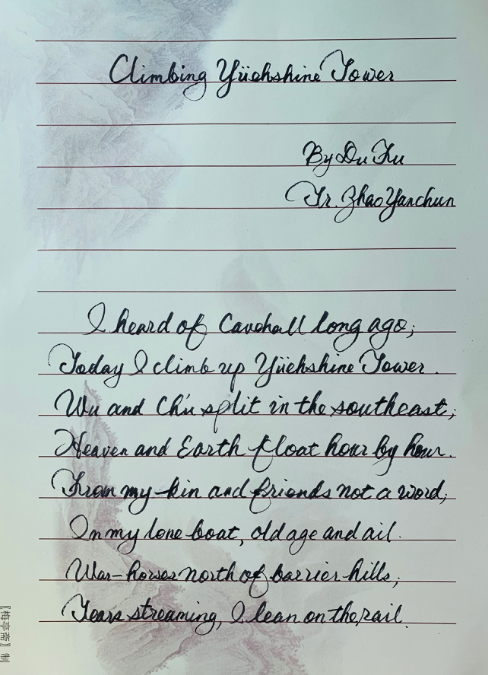 Climbing Yüehshine Tower
By Du Fu
Tr. Zhao Yanchun
I heard of Cavehall long ago;
Today I climb up Yüehshine Tower.
Wu and Ch'u split in the southeast;
Heaven and Earth float hour by hour.
From my kin and friends not a word;
In my lone boat, old age and ail.
War-horses north of barrier hills;
Tears streaming, I lean on the rail.
〖梅亭斋〗制